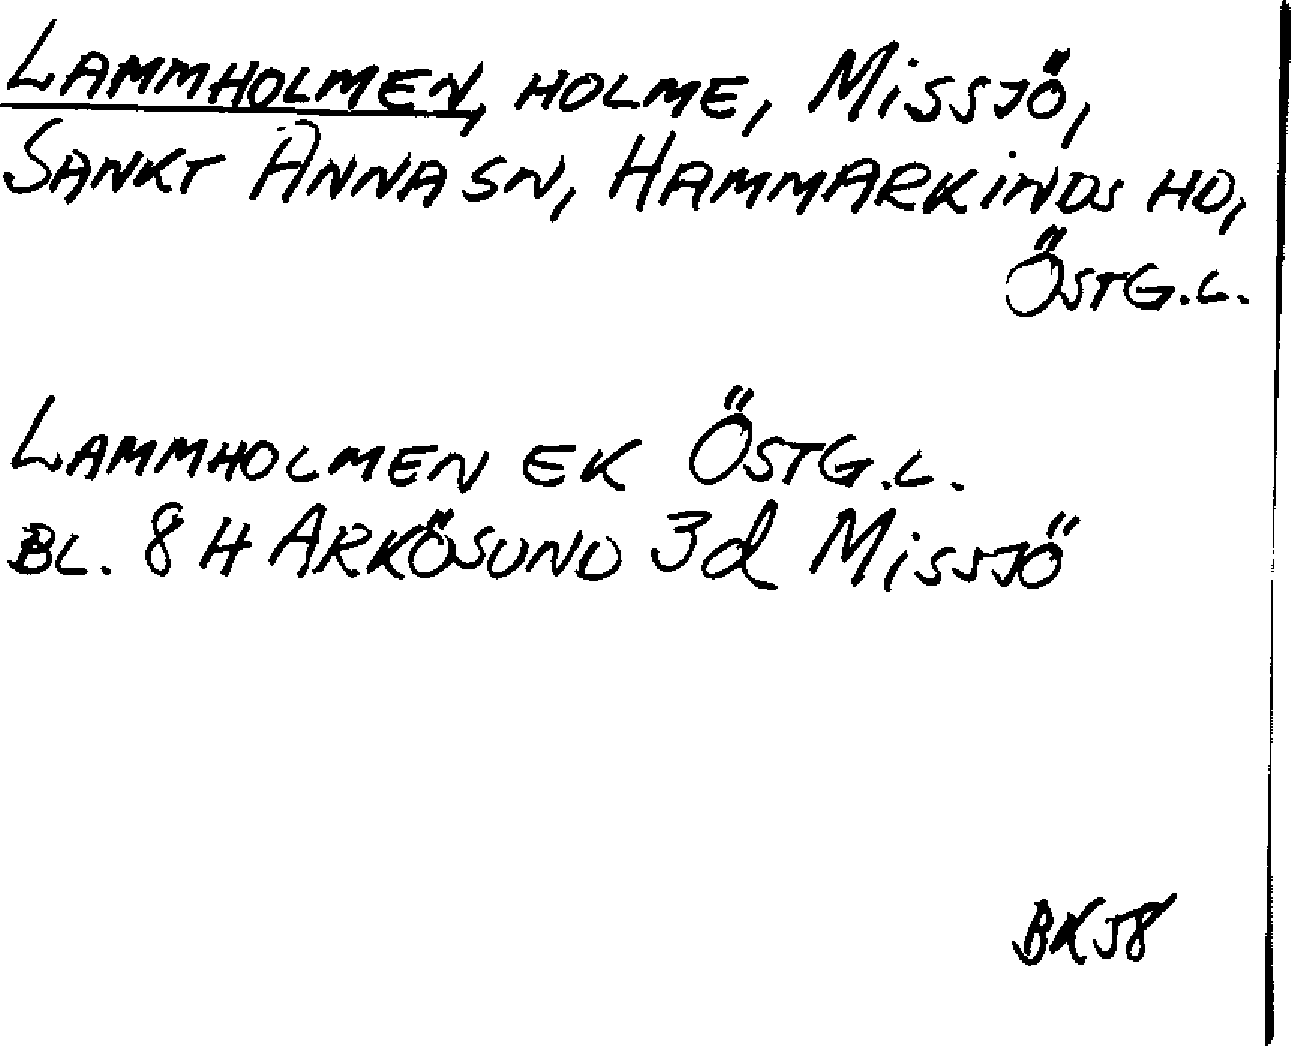 LAMMHOLMEN, HOLME, MISSJÖ,
SANKT ANNA SN, HAMMARKINDS HD,
ÖSTG.L.
LAMMHOLMEN EK ÖSTG.L.
BL. 8 H ARKÖSUND 3d MISSJÖ
BK58